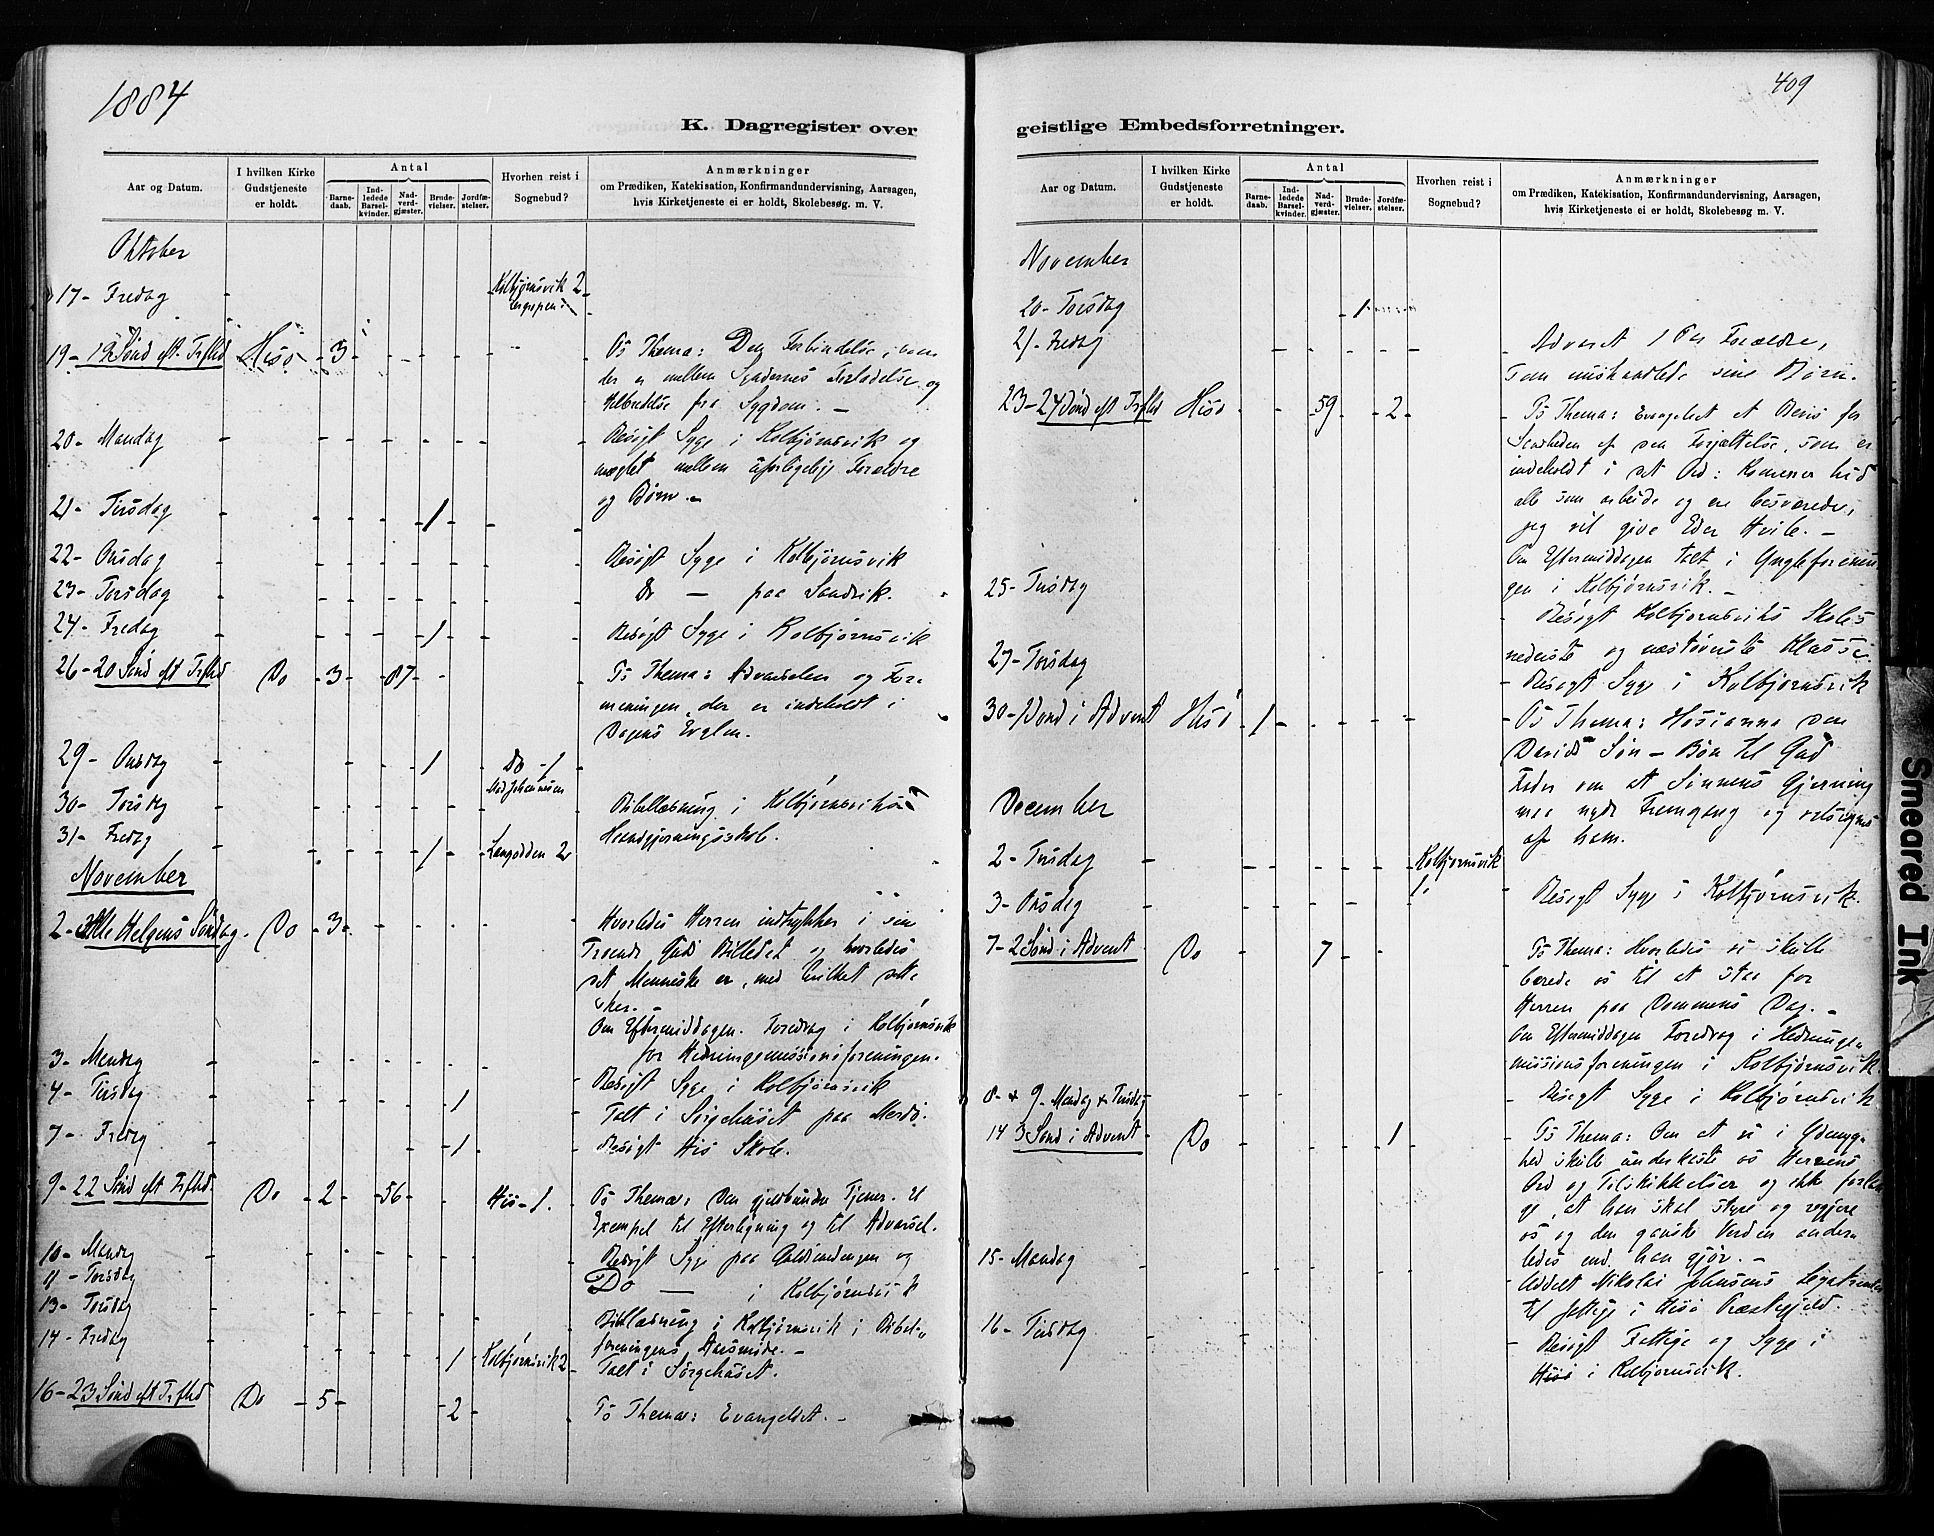 1884
K. Dagregister over
Aar og Datum.
I hvilken Kirke Gudstjeneste er holdt.
Antal
Barnedaab.
Indledede Barselkvinder.
Nadverdgjæster.
Brudevielser.
Jordfæstelser.
Hvorhen reist i Sognebud?
Anmærkninger
om Prædiken, Katekisation, Konfirmandundervisning, Aarsagen,
hvis Kirketjeneste ei er holdt, Skolebesøg. m. V.
Oktober
17- Fredag - Kolbjørnsvik 2
19- 19 Sönd eft. Trftd Hisö - 3 - Ts Thema: Den Forbindelse, som
der er mellem Syndernes Forladelse og
Helbredelse fra Sygdom. -
20- Mandag - Besögt Syge i Kolbjørnsvik og
mæglet mellem uforligelige Forældre
og Börn. -
21- Tirsdag - 1 -
22- Onsdag - Besögt Syge i Kolbjørnsvik
23- Torsdag - Do — paa Sandvik.
24- Fredag - 1 - Besögt Syge i Kolbjørnsvik
26- 20 Sönd eft Trftd Do - 3 - 87 - Ts Thema: Advarselen og For
meningen, der er indeholdt i
Dagens Evglm.
29- Onsdag - 1 - Do -1
30- Torsdag - Bibellæsning i Kolbjørnsvikens
31- Fredag - 1 - Langodden 2 Haandgjerningsskole.
November
2- Alle Helgens Söndag. Do - 3 - Hvorledes Herren indtrykker i sine
Troende Guds Billedet og hvorledes
det Menneske er, med hvilket dette
sker. -
Om Eftermiddagen. Foredrag i Kolbjørnsvik
for Hedningemissionsforeningen.
3- Mandag - Besögt Syge i Kolbjørnsvik
4- Tirsdag - 1 - Talt i Sörgehuset paa Merdö.
7- Fredag - 1 - Besögt His Skole.
9- 22 Sönd eft Trftd Do - 2 - 56 - His - 1. Ts Thema: Den gjeldbundne Tjener. Et
Exempel til Efterligning og til Advarsel.
10- Mandag - Besögt Syge paa og
11- Torsdag Do — i Kolbjørnsvik
13- Torsdag - Bibellæsning i Kolbjørnsvik i Bibel-
14- Fredag - 1 - Kolbjørnsvik 2 foreningens Aarsmöde. -
Talt i Sörgehuset.
16- 23 Sönd eft Trftd Do - 5 - 2 - Ts Thema: Evangeliet. -
409
geistlige Embedsforretninger.
Aar og Datum.
I hvilken Kirke Gudstjeneste er holdt.
Antal
Barnedaab.
Indledede Barselkvinder.
Nadverdgjæster.
Brudevielser.
Jordfæstelser.
Hvorhen reist i Sognebud?
Anmærkninger
om Prædiken, Katekisation, Konfirmandundervisning, Aarsagen,
hvis Kirketjeneste ei er holdt, Skolebesøg m. V.
November
20- Torsdag - 1
21- Fredag - Advaret 1 Par Forældre,
som mishandlede sine Börn.
23- 24 Sönd eft Trftd Hisö - 59 - 2 - Ts Thema: Evangeliet et Bevis for
Sandheden af den Forjættelse, som er
indeholdt i det Ord: Kommer hid
alle som arbeide og ere besværede,
jeg vil give Eder Hvile. -
Om Eftermiddagen talt i Ynglefore­nin-
gen i Kolbjørnsvik. -
25- Tirsdag - Besögt Kolbjørnsviks Skoles
nederste og næstöverste Klasse.
27- Torsdag - Besögt Syge i Kolbjørnsvik
30- 1 Sönd i Advent Hisö - 1 - Ts Thema: Hosianna den
Davids Sön - Bön til Gud
Fader om at Sönnens Gjerning
maa nyde Fremgang og velsignes
af ham.
December
2- Tirsdag - Kolbjørnsvik 1
3- Onsdag - Besögt Syge i Kolbjørnsvik.
7- 2 Sönd i Advent Do - 7 - Ts Thema: Hvorledes vi skulle
berede os til at staa for
Herren paa Dommens Dag. -
Om Eftermiddagen Foredrag i Hedninge-
missionsforeningen i Kolbjørnsvik.
8- + 9- Mandag + Tirsdag - Besögt Syge i Kolbjørnsvik
14 3 Sönd i Advent - Do - 1 - Ts Thema: Om at vi i Ydmyg-
hed skulle underkaste os Herrens
Ord og Tilskikkelser og ikke forlan
ge, at han skal styre og regjere
os og den ganske Verden ander-
ledes end han gjör. -
15- Mandag - Uddelt Nikolai Johnsens Legatrenter
til fattige i Hisö Præstegjeld.
16- Tirsdag - Besögt Fattige og Syge i
Hisö i Kolbjørnsvik.
Smeared Ink